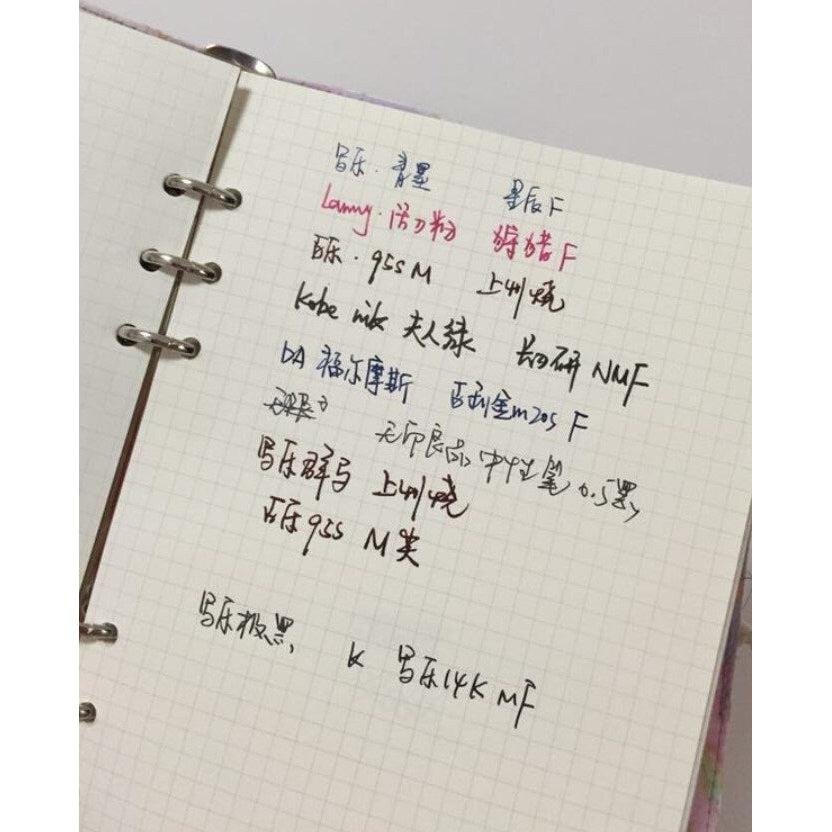 写乐·青墨 星辰F
Lamy·活力粉 狩猎F
百乐·95S M 上州烧
Kobe 夫人绿 长研 NMF
DA 福尔摩斯 百利金m205 F
无印良品中性笔 0.5黑
写乐群马 上州烧
百乐95S M尖
写乐极黑 K 写乐14K MF